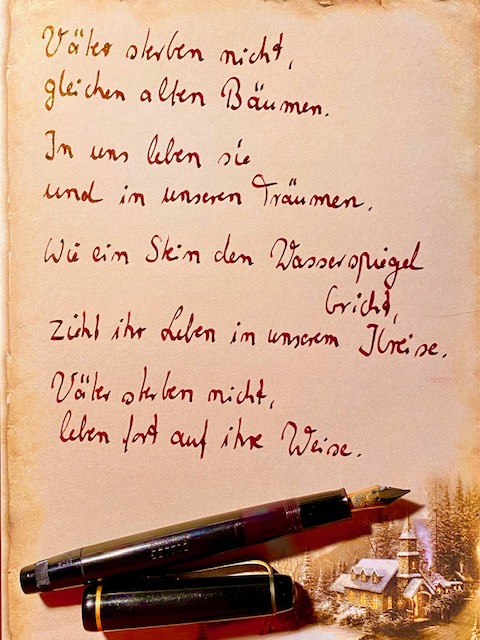 Väter sterben nicht,
gleichen alten Bäumen.
In uns leben sie
und in unseren Träumen.
Wie ein Stein den Wasserspiegel
bricht,
zieht ihr Leben in unserem Kreise.
Väter sterben nicht,
leben fort auf ihre Weise.